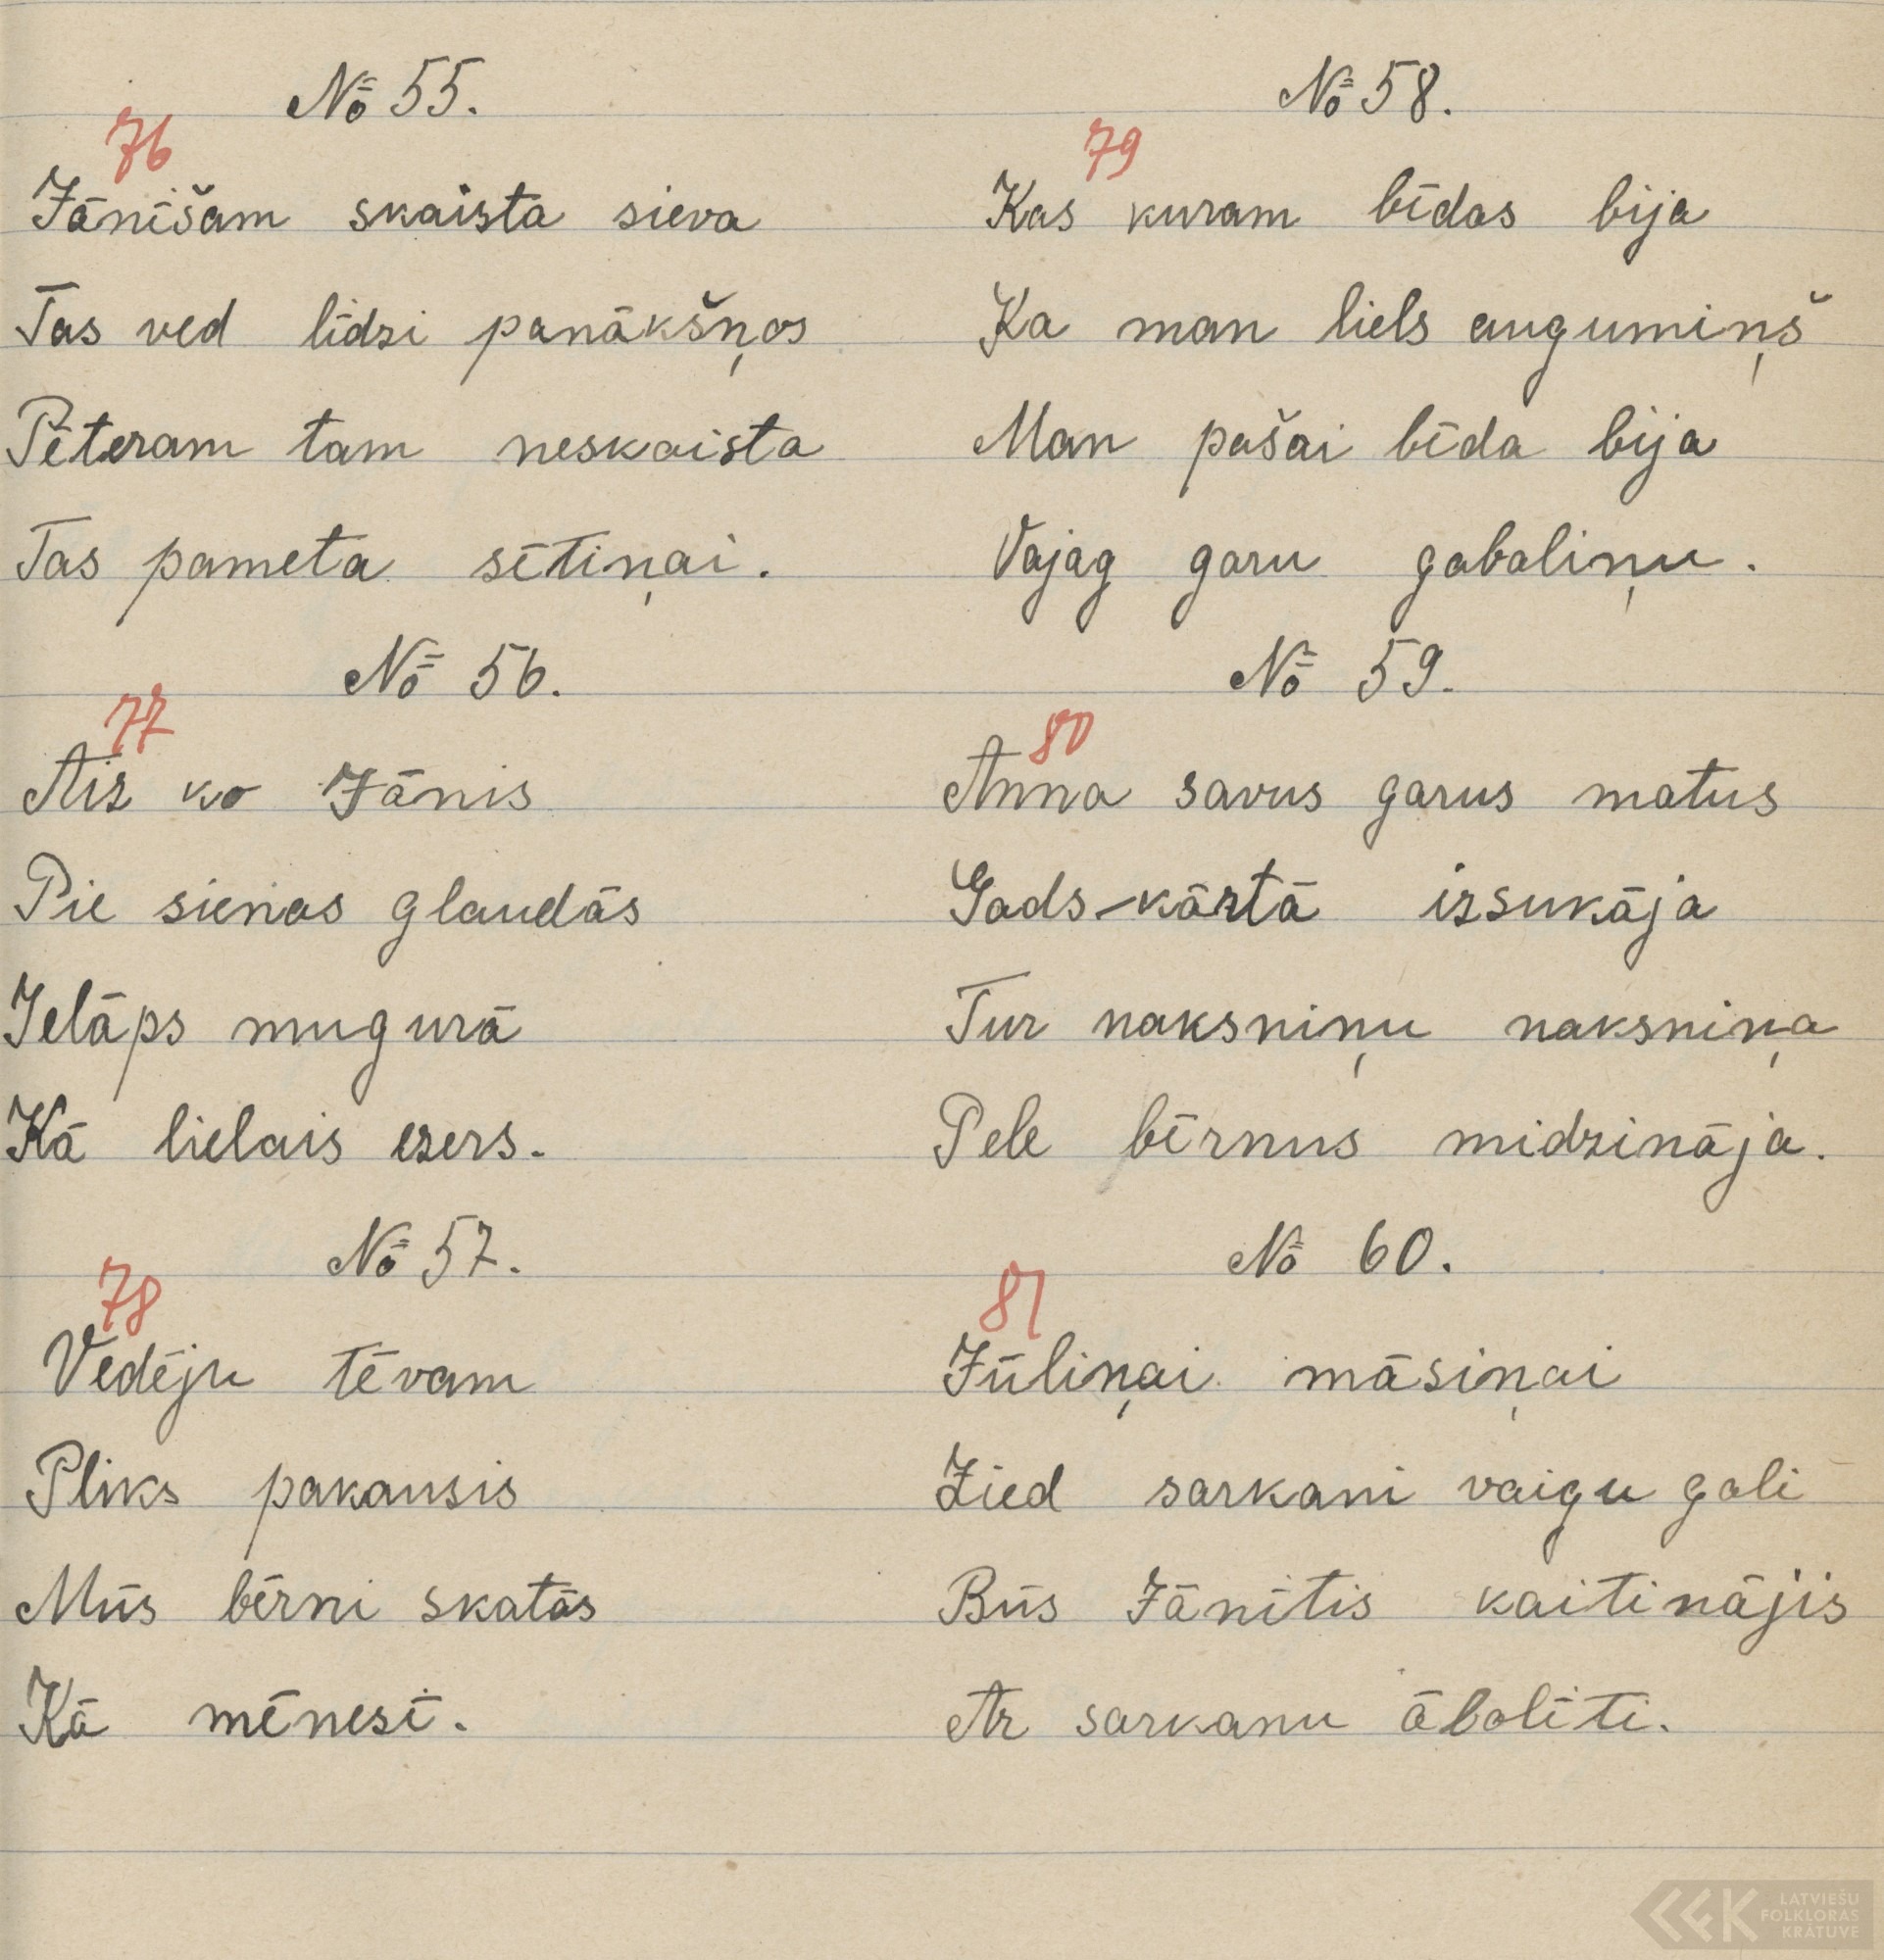 № 55.
76
Jānīšam skaista sieva
Tas ved līdzi panākšņos
Pēteram tam neskaista
Tas pameta sētiņai.
№ 56.
77
Aiz ko Jānis
Pie sienas glaudās
Ielāps mugurā
Kā lielais ezers.
№ 57.
78
Vedēju tēvam
Pliks pakausis
Mūs bērni skatās
Kā mēnesī.
№ 58.
79
Kas kuram bēdas bija
Ka man liels augumiņš
Man pašai bēda bija
Vajag garu gabaliņu.
№ 59.
80
Anna savus garus matus
Gads-kārtā izsukāja
Tur naksniņu naksniņa
Pele bērnus midzināja.
№ 60.
81
Jūliņai māsiņai
Zied sarkani vaigu gali
Būs Jānītis kaitinājis
Ar sarkanu ābolīti.
LATVIEŠU
FOLKLORAS
KRĀTUVE